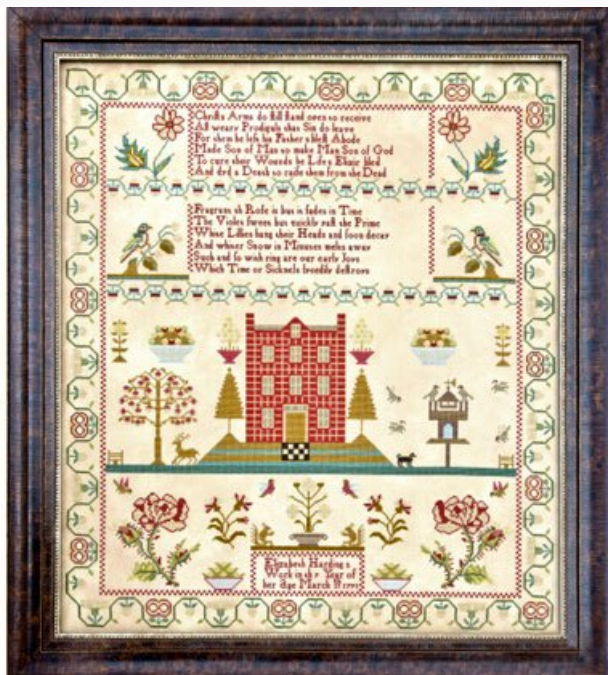 Christs Arms do still stand open to receive
All weary Prodigals that Sin do leave
For them he left his Father s blest Abode
Made Son of Man to make Man Son of God
To cure their Wounds he Life s Elixir bled
And dyd a Death to raise them from the Dead
Fragrant th Rose is but it fades in Time
The Violet sweet but quickly past the Prime
White Lillies hang their Heads and soon decay
And whiter Snow in Minutes melts away
Such and so with ring are our early Joys
Which Time or Sickness speedily destroys
Elizabeth Harding s
Work in th Year of
her Age March